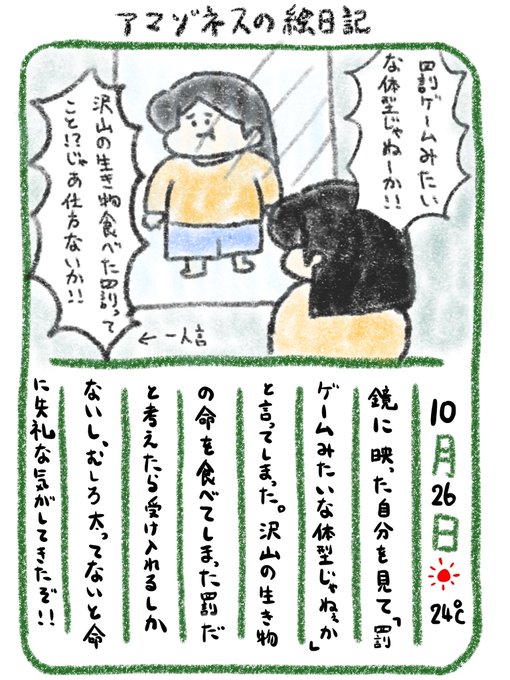 アマゾネスの絵日記
罰ゲームみたい
な体型じゃねーか!!
沢山の生き物食べた罰って
こと!?じゃあ仕方ないか!!
←一人言
10月26日 24℃
鏡に映った自分を見て、「罰
ゲームみたいな体型じゃねぇか」
と言ってしまった。沢山の生き物
の命を食べてしまった罰だ
と考えたら受け入れるしか
ないし、むしろ太ってないと命
に失礼な気がしてきたぞ!!